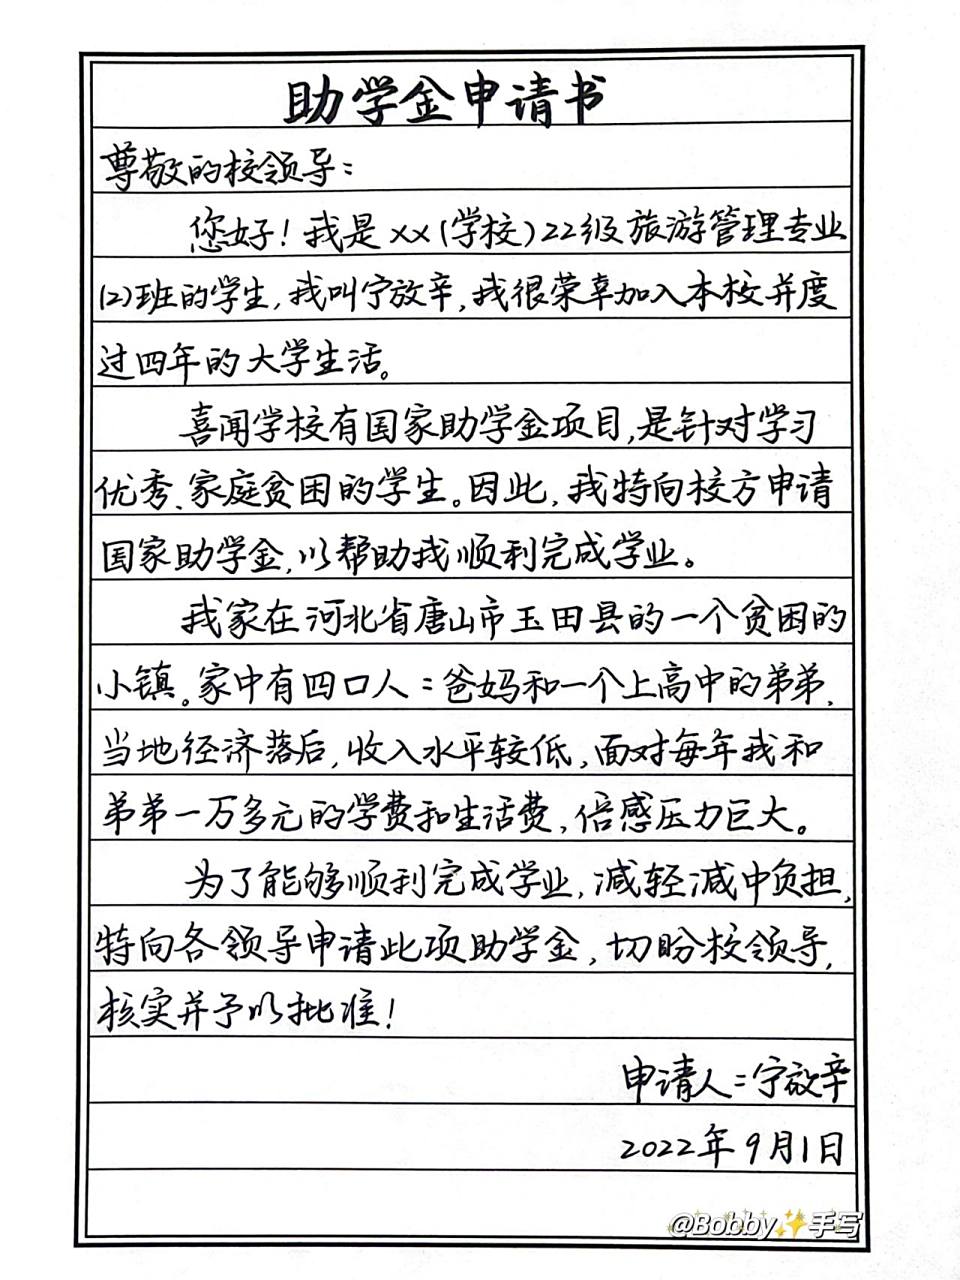 助学金申请书
尊敬的校领导：
您好！我是xx(学校)22级旅游管理专业
(2)班的学生，我叫宁放辛，我很荣幸加入本校并度
过四年的大学生活。
喜闻学校有国家助学金项目，是针对学习
优秀、家庭贫困的学生。因此，我特向校方申请
国家助学金，以帮助我顺利完成学业。
我家在河北省唐山市玉田县的一个贫困的
小镇。家中有四口人：爸妈和一个上高中的弟弟，
当地经济落后，收入水平较低，面对每年我和
弟弟一万多元的学费和生活费，倍感压力巨大。
为了能够顺利完成学业，减轻减中负担，
特向各领导申请此项助学金，切盼校领导，
核实并予以批准！
申请人：宁放辛
2022年9月1日
@Bobby✨手写